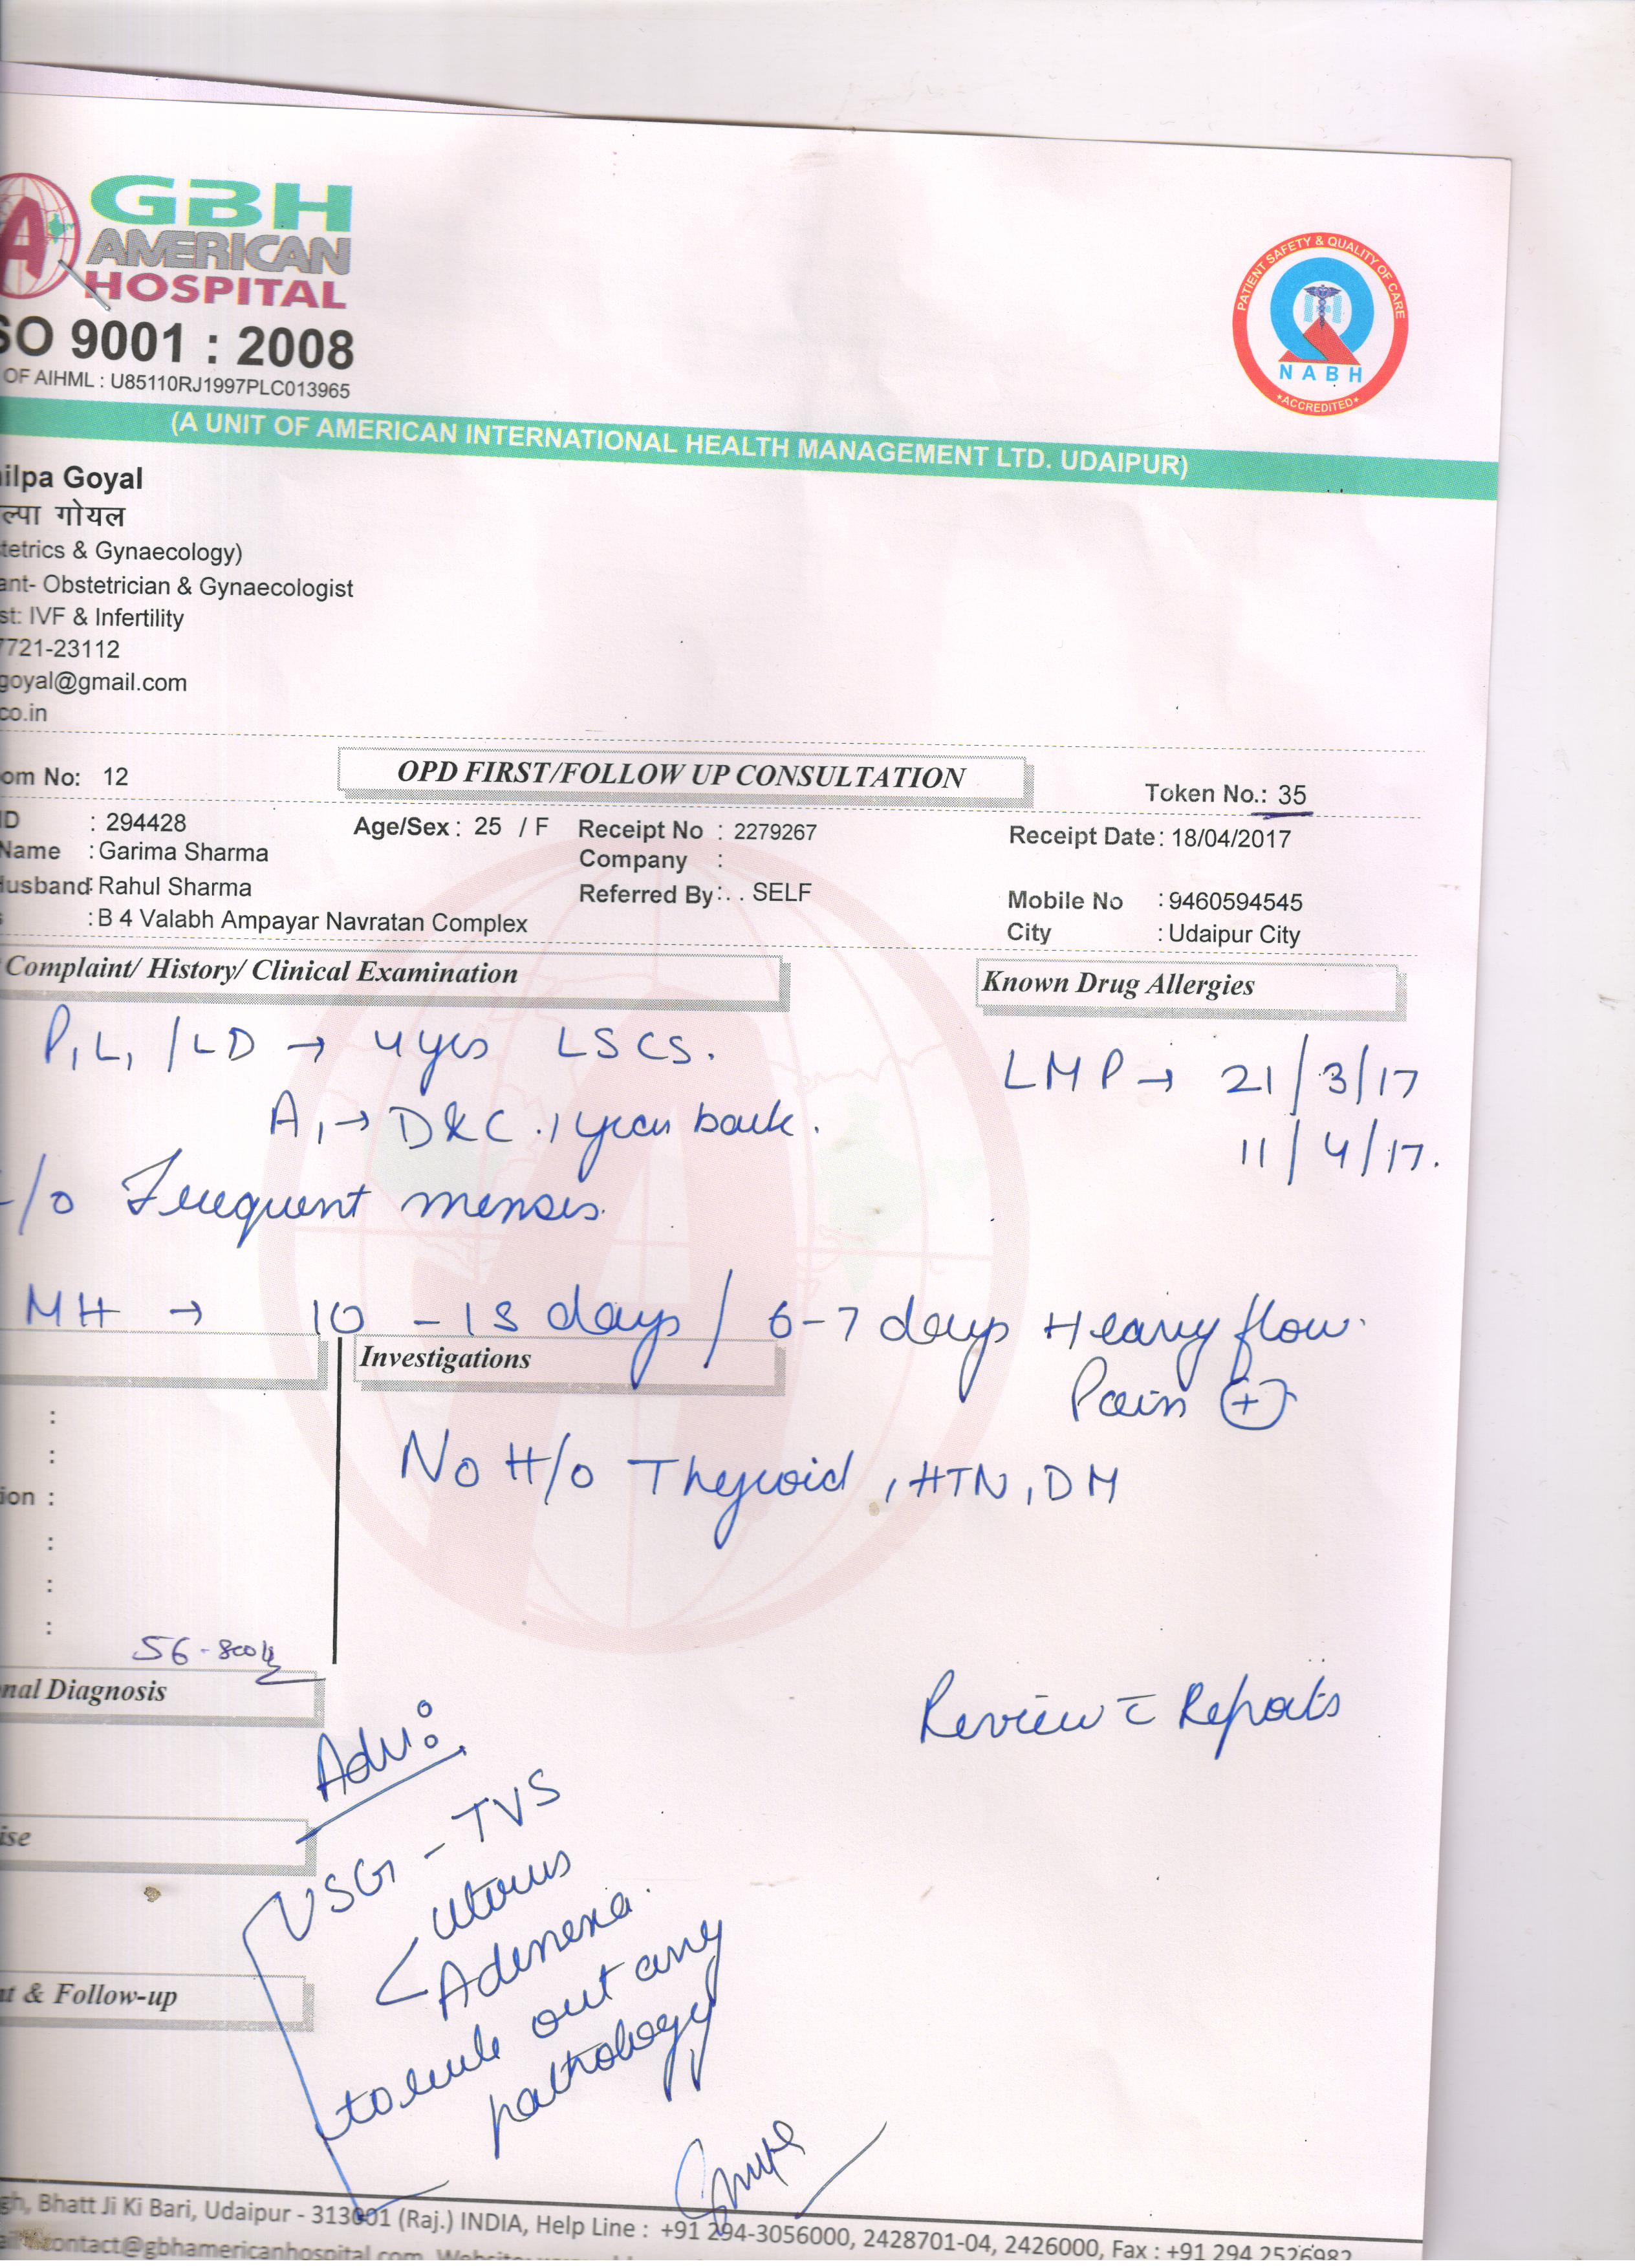 GBH
AMERICAN
HOSPITAL
SO 9001 : 2008
OF AIHML : U85110RJ1997PLC013965
PATIENT SAFETY & QUALITY OF CARE
NABH
ACCREDITED
(A UNIT OF AMERICAN INTERNATIONAL HEALTH MANAGEMENT LTD. UDAIPUR)
ilpa Goyal
ल्पा गोयल
tetrics & Gynaecology)
ant- Obstetrician & Gynaecologist
st: IVF & Infertility
7721-23112
goyal@gmail.com
co.in
om No: 12 OPD FIRST/FOLLOW UP CONSULTATION Token No.: 35
ID : 294428 Age/Sex : 25 / F Receipt No : 2279267 Receipt Date : 18/04/2017
Name : Garima Sharma Company :
Husband : Rahul Sharma Referred By : . . SELF Mobile No : 9460594545
s : B 4 Valabh Ampayar Navratan Complex City : Udaipur City
Complaint/ History/ Clinical Examination Known Drug Allergies
P1L1 /LD → 4yrs LSCS. LMP → 21/3/17
A1 → D&C . 1 year back. 11/4/17.
/o Frequent menses.
MH → 10 - 15 days / 6-7 days Heavy flow.
Investigations
Pain (+)
No H/o Thyroid, HTN, DM
:
:
ion :
:
:
:
56-800
nal Diagnosis
Review c̄ Reports
Adv:
ise
USG - TVS
< uterus
Adenexa.
to rule out any
pathology
nt & Follow-up
gh, Bhatt Ji Ki Bari, Udaipur - 313001 (Raj.) INDIA, Help Line : +91 294-3056000, 2428701-04, 2426000, Fax : +91 294 2526982
contact@gbhamericanhospital.com